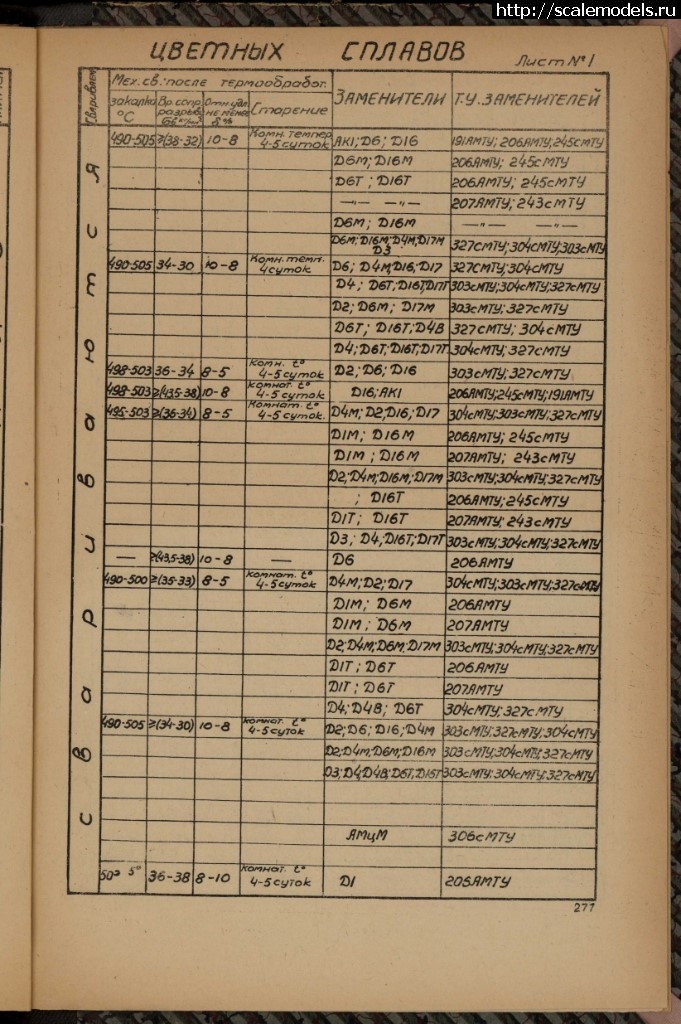 http://scalemodels.ru
ЦВЕТНЫХ СПЛАВОВ
Лист № 1
Мех. св. после термообработ. ЗАМЕНИТЕЛИ Т.У. ЗАМЕНИТЕЛЕЙ
закалка °C Вр. сопр. разрыв. Отн. удл. не менее δ% Старение
490-505 ≥(38-32) 10-8 Комн. темпер 4-5 суток АК1; D6; D16 191АМТУ; 206АМТУ; 245смту
D6М; D16М 206АМТУ; 245смту
D6Т; D16Т 206АМТУ; 245смту
—„— —„— 207АМТУ; 243смту
D6М; D16М —„— —„—
D6М; D16М; D4М; D17М D3 327смту; 304смту; 303смту
490-505 34-30 10-8 Комн. темп. 4 суток D6; D4М; D16; D17 327смту; 304смту
D4; D6Т; D16Т; D17Т 303смту; 304смту; 327смту
D2; D6М; D17М 303смту; 327смту
D6Т; D16Т; D4В 327смту; 304смту
D4; D6Т; D16Т; D17Т 304смту; 327смту
498-503 36-34 8-5 Комн. t° 4-5 суток D2; D6; D16 303смту; 327смту
498-503 ≥(43,5-38) 10-8 Комнат. t° 4-5 суток D16; АК1 206АМТУ; 245смту; 191АМТУ
495-503 ≥(36-34) 8-5 Комнат. t° 4-5 суток D4М; D2; D16; D17 304смту; 303смту; 327смту
D1М; D16М 206АМТУ; 245смту
D1М; D16М 207АМТУ; 243смту
D2; D4М; D16М; D17М 303смту; 304смту; 327смту
; D16Т 206АМТУ; 245смту
D1Т; D16Т 207АМТУ; 243смту
D3; D4; D16Т; D17Т 303смту; 304смту; 327смту
— ≥(43,5-38) 10-8 — D6 206АМТУ
490-500 ≥(35-33) 8-5 Комнат. t° 4-5 суток D4М; D2; D17 304смту; 303смту; 327смту
D1М; D6М 206АМТУ
D1М; D6М 207АМТУ
D2; D4М; D6М; D17М 303смту; 304смту; 327смту
D1Т; D6Т 206АМТУ
D1Т; D6Т 207АМТУ
D4; D4В; D6Т 304смту; 327смту
490-505 ≥(34-30) 10-8 Комнат. t° 4-5 суток D2; D6; D16; D4М 303смту; 327смту; 304смту
D2; D4М; D6М; D16М 303смту; 304смту; 327смту
D3; D4; D4В; D6Т; D16Т 303смту; 304смту; 327смту
АМцМ 306смту
36-38 8-10 Комнат. t° 4-5 суток D1 205АМТУ
Свариваются
277